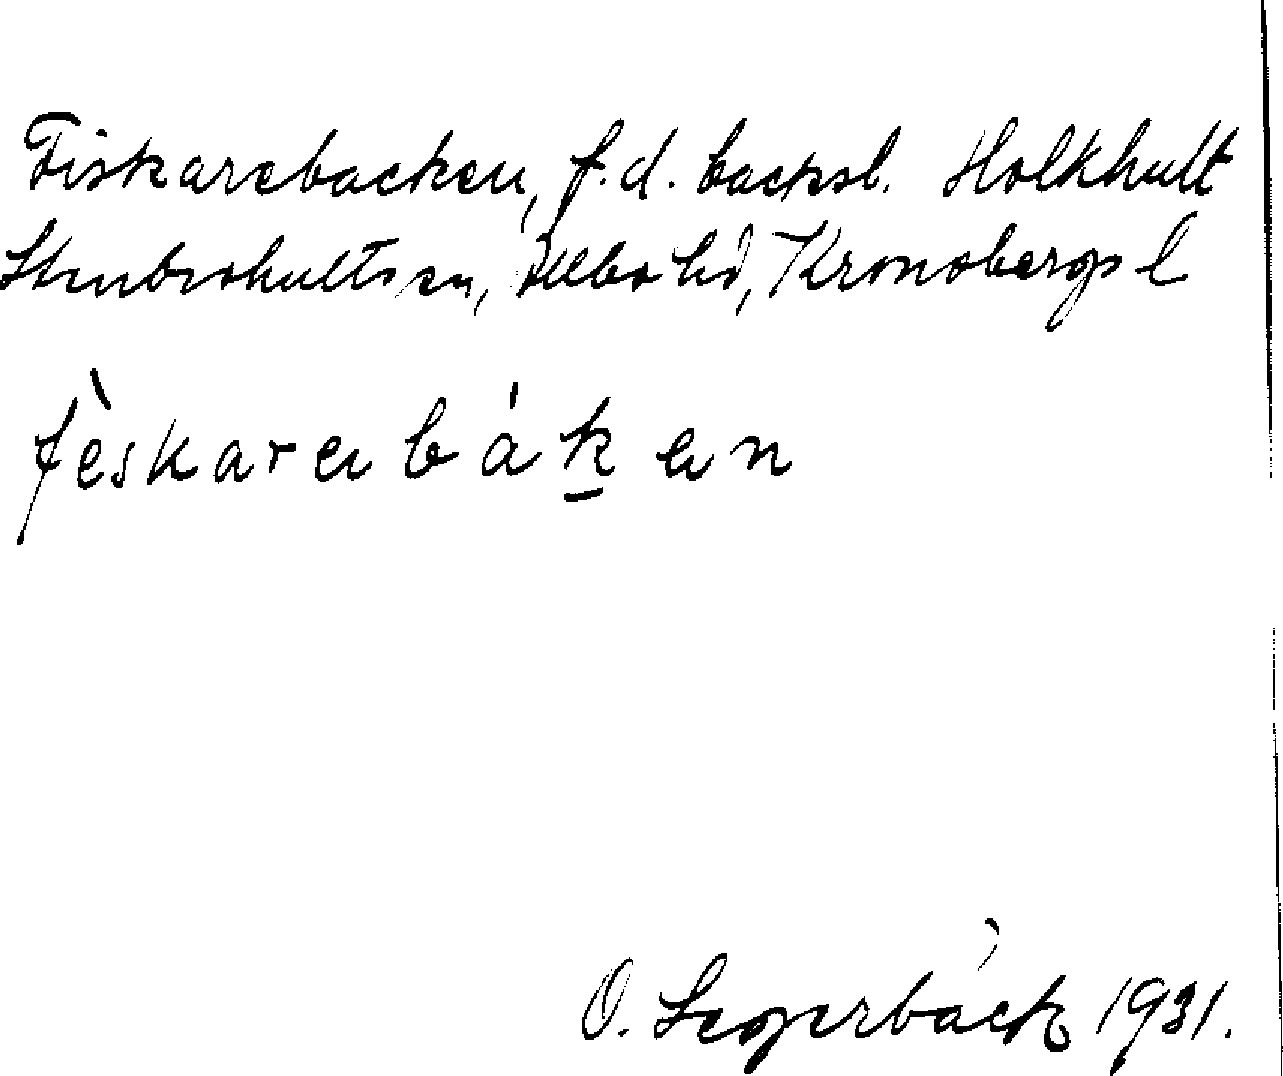 Fiskarebacken, f.d. backsl. Holkhult
Stenbrohults sn, Allbo hd, Kronobergs l
fèskarebáken
O. Segerbäck 1931.